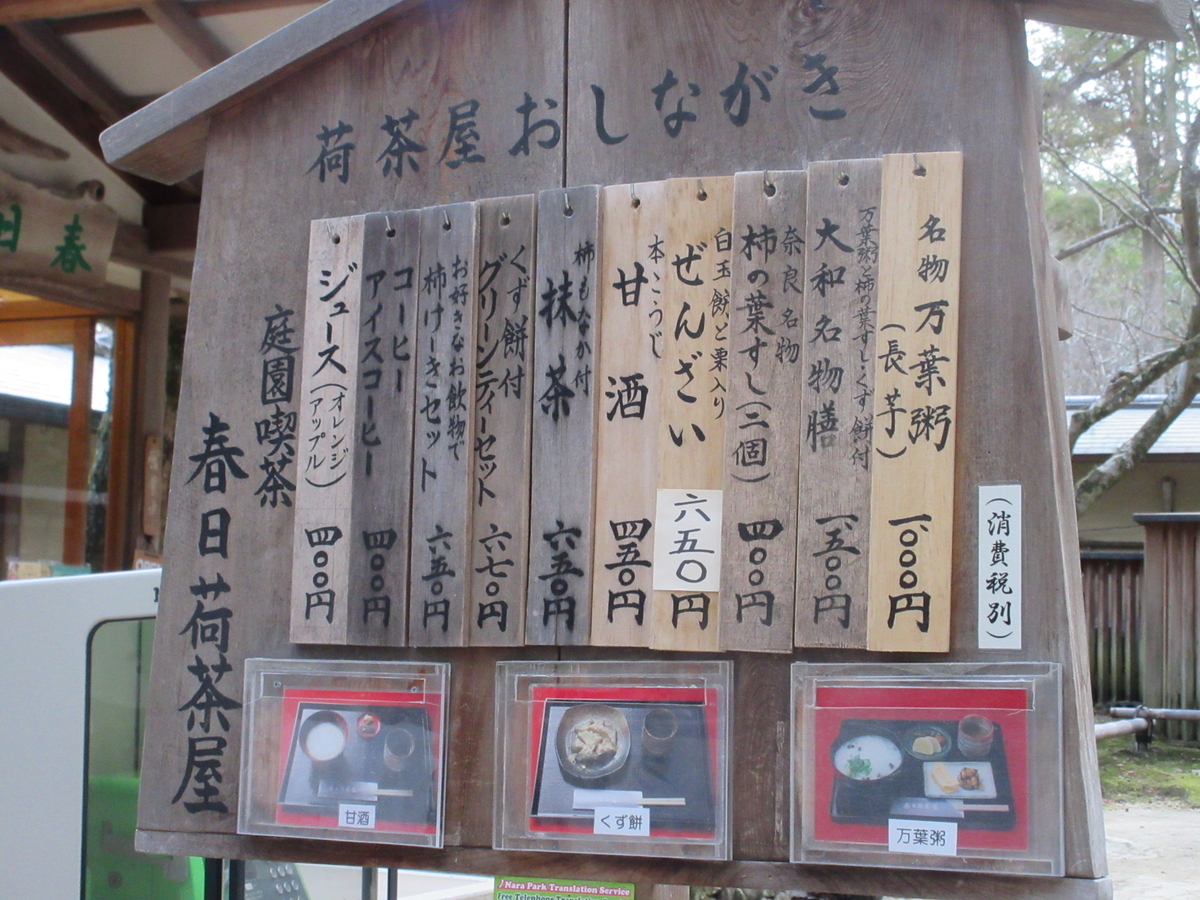 荷茶屋おしながき
(消費税別)
名物 万葉粥
(長芋)
一、〇〇〇円
万葉粥と柿の葉すし・くず餅付
大和名物膳
一、五〇〇円
奈良名物
柿の葉すし(二個)
四〇〇円
白玉餅と栗入り
ぜんざい
六五〇円
本こうじ
甘酒
四五〇円
柿もなか付
抹茶
六五〇円
くず餅付
グリーンティーセット
六七〇円
お好きなお飲物で
柿けーきセット
六五〇円
コーヒー
アイスコーヒー
四〇〇円
ジュース(オレンジ)
(アップル)
四〇〇円
庭園喫茶
春日荷茶屋
甘酒
くず餅
万葉粥
春日
Nara Park Translation Service